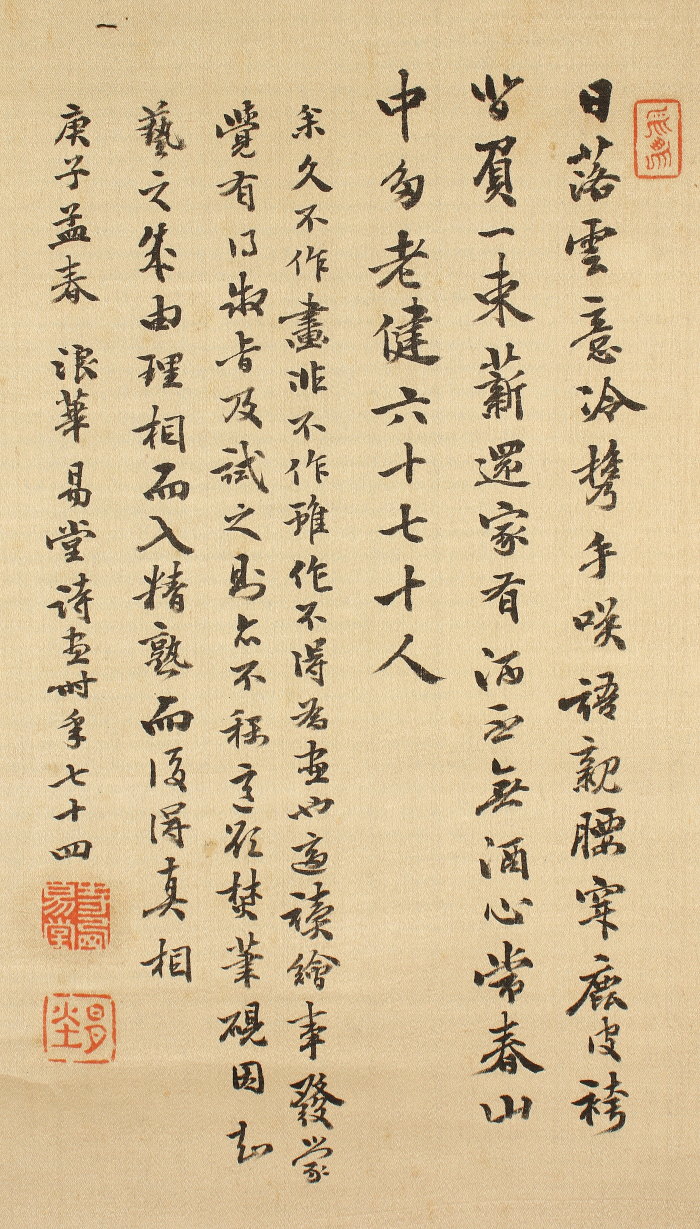 日落雲意冷携手咲語親腰穿鹿皮袴
皆負一束薪還家有酒立無酒心常春山
中多老健六十七十人
余久不作畫非不作雖作不得為画也適讀繪事發蒙
覺有得破旨及試之則亦不稱意欲焚筆硯因知
藝之成由理相而入精熟而後得真相
庚子孟春 浪華易堂詩画時年七十四
易堂